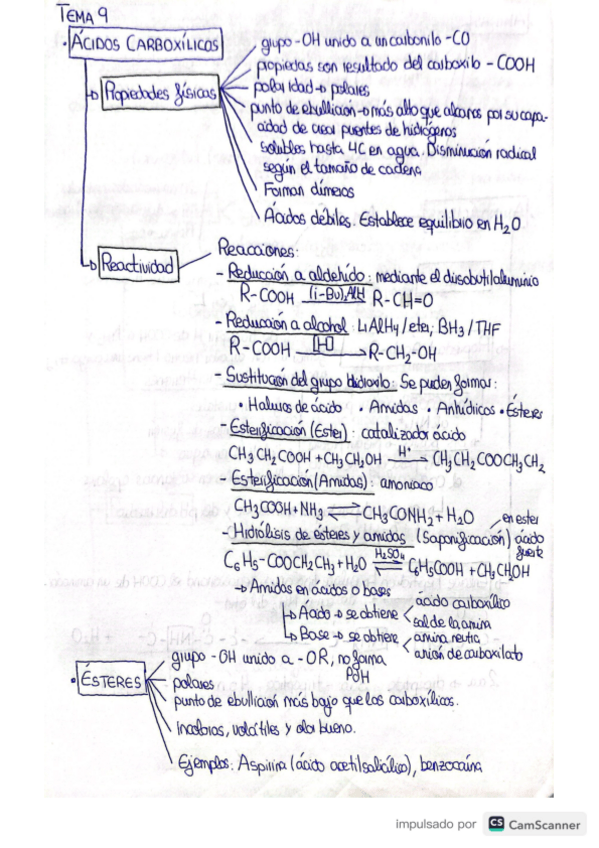 TEMA 9
· ÁCIDOS CARBOXÍLICOS
grupo -OH unido a un carbonilo -CO
propiedas son resultado del carboxilo - COOH
Propiedades físicas
polaridad → polares
punto de ebullición → más alto que alcanos por su capa-
cidad de crear puentes de hidrógenos
solubles hasta 4C en agua. Disminución radical
según el tamaño de cadena
Forman dímeros
Ácidos débiles. Establece equilibrio en H2O.
Reactividad
Reacciones:
- Reducción a aldehído: mediante el diisobutilaluminio
R-COOH (i-Bu)2AlH R-CH=O
- Reducción a alcohol: LiAlH4 / eter, BH3 / THF
R-COOH [H] → R-CH2-OH
- Sustitución del grupo hidroxilo: Se pueden formar:
· Haluros de ácido · Amidas · Anhídricos · Ésteres
- Esterificación (Ester): catalizador ácido
CH3CH2COOH + CH3CH2OH H+ → CH3CH2COOCH2CH2
- Esterificación (Amidas): amoniaco
CH3COOH + NH3 ⇌ CH3CONH2 + H2O
- Hidrólisis de ésteres y amidas (Saponificación) en ester ácido fuerte
C6H5-COOCH2CH3 + H2O H2SO4 ⇌ C6H5COOH + CH3CH2OH
→ Amidas en ácidos o bases
→ Ácido → se obtiene < ácido carboxílico
sal de la amina
→ Base → se obtiene < amina neutra
anión de carboxilato
· ÉSTERES
grupo -OH unido a -OR, no forma
PdH
polares
punto de ebullición más bajo que los carboxílicos.
incoloros, volátiles y olor bueno.
Ejemplos: Aspirina (ácido acetilsalicílico), benzocaína
impulsado por CS CamScanner